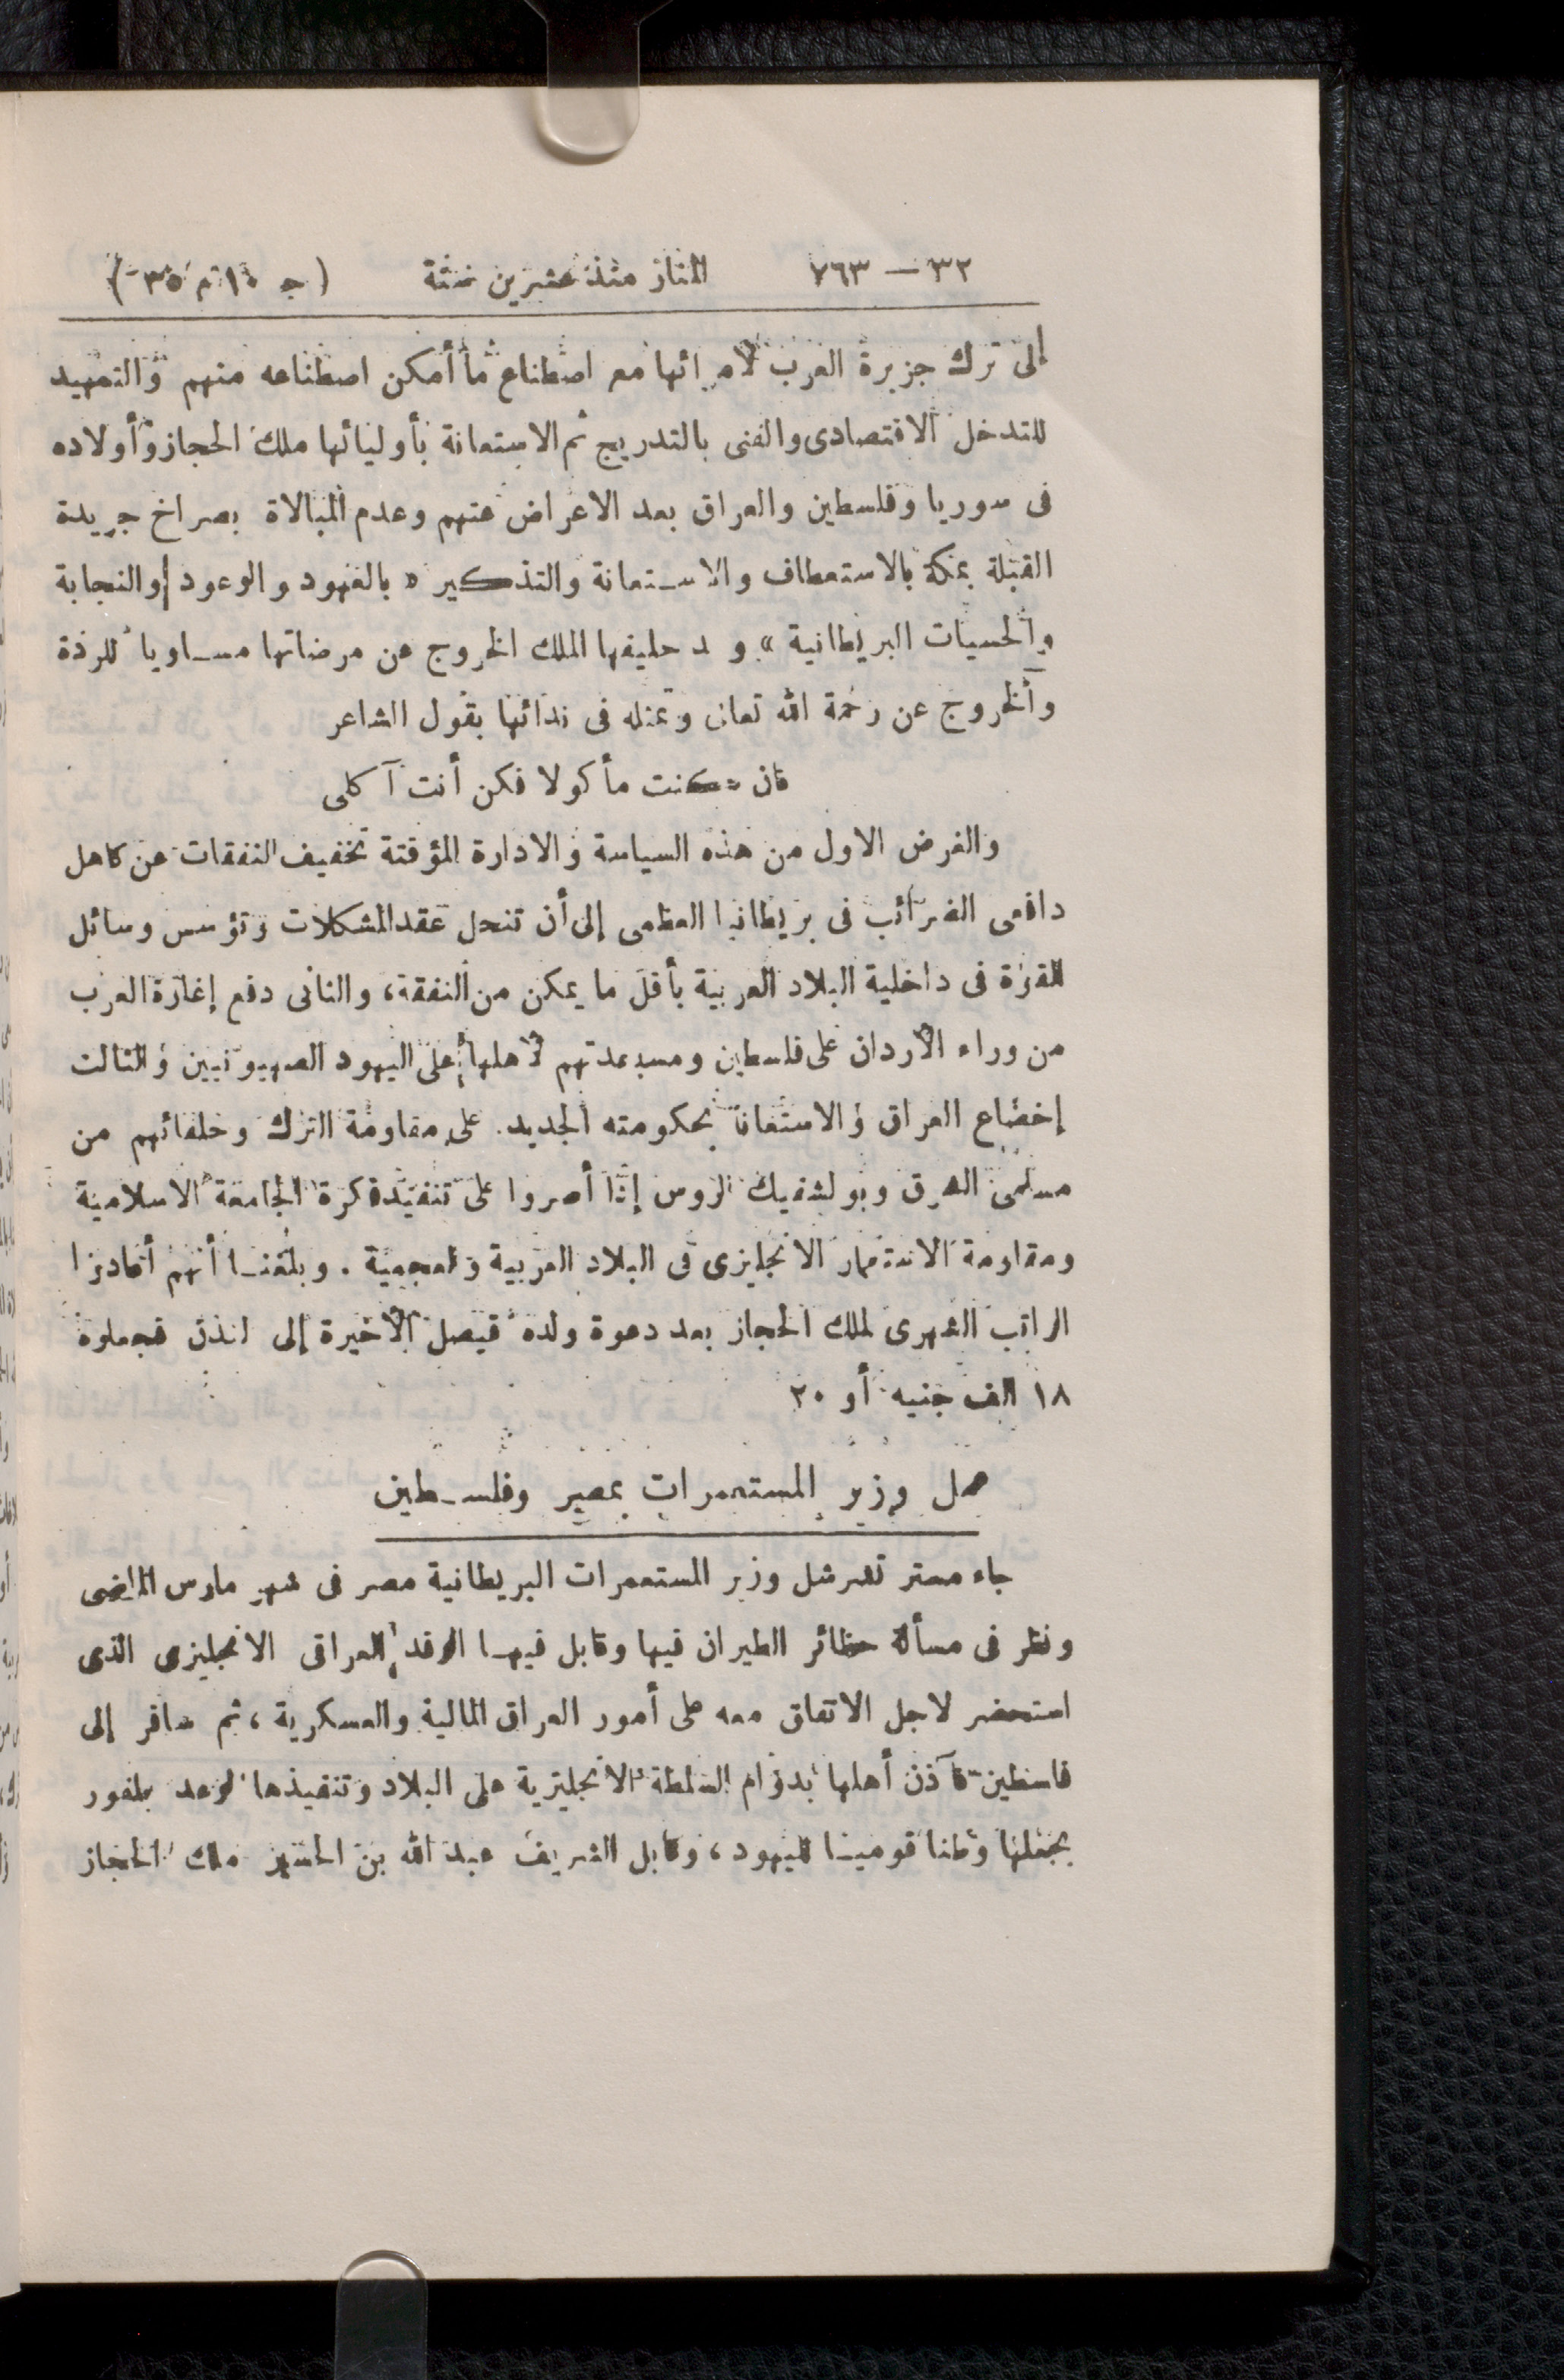 ٣٢ — ٧٦٣ المنار منذ عشرين سنة (ج ١٠ م ٣٥)
إلى ترك جزيرة العرب لأمرائها مع اصطناع ما أمكن اصطناعه منهم والتمهيد
للتدخل الاقتصادى والفنى بالتدريج ثم الاستعانة بأوليائها ملك الحجاز وأولاده
فى سوريا وفلسطين والعراق بعد الاعراض عنهم وعدم المبالاة بصراخ جريدة
القبلة بمكة بالاستعطاف والاستعانة والتذكير « بالعهود والوعود والنجابة
والحسيات البريطانية » و د حليفها الملك الخروج عن مرضاتها مساويا للردة
والخروج عن رحمة الله تعالى وتمثله فى ندائها بقول الشاعر
فان كنت مأكولا فكن أنت آكلى
والغرض الاول من هذه السياسة والادارة المؤقتة تخفيف النفقات عن كاهل
دافعى الضرائب فى بريطانيا العظمى إلى أن تنحل عقد المشكلات وتؤسس وسائل
القوة فى داخلية البلاد العربية بأقل ما يمكن من النفقة، والثانى دفع إغارة العرب
من وراء الأردن على فلسطين ومساعدتهم لأهلها على اليهود الصهيونيين والثالث
إخضاع العراق والاستعانة بحكومته الجديدة على مقاومة الترك وحلفائهم من
مسلمى الشرق وبولشفيك الروس إذا أصروا على تنفيذ فكرة الجامعة الاسلامية
ومقاومة الاستعمار الانجليزى فى البلاد العربية والعجمية . وبلغنا أنهم أعادوا
الراتب الشهرى لملك الحجاز بعد دعوة ولده فيصل الأخيرة إلى لندن فجعلوه
١٨ الف جنيه أو ٢٠
عمل وزير المستعمرات بمصر وفلسطين
جاء مستر تشرشل وزير المستعمرات البريطانية مصر فى شهر مارس الماضى
ونظر فى مسألة حظائر الطيران فيها وقابل فيها الوفد العراقى الانجليزى الذى
استحضر لاجل الاتفاق معه على أمور العراق المالية والعسكرية، ثم سافر إلى
فلسطين فآذن أهلها بدوام السلطة الانجليزية على البلاد وتنفيذها لوعد بلفور
بجعلها وطنا قوميا لليهود، وقابل الشريف عبد الله بن الحسين ملك الحجاز